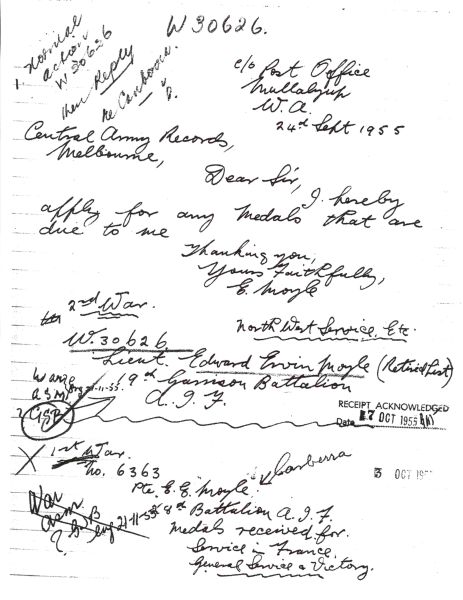 W 30626.
1. Normal
action
W 30626
then Reply
re Canberra
c/o Post Office
Mullalyup
W. A.
24th Sept 1955
Central Army Records,
Melbourne,
Dear Sir,
I hereby
apply for any Medals that are
due to me
Thanking you,
Yours Faithfully,
E. Moyle
2nd War.
North West Service. Etc.
W. 30626.
Lieut. Edward Ervin Moyle (Retired List)
19th Garrison Battalion
A. I. F.
War
ASM
21-11-55
? GSB
RECEIPT ACKNOWLEDGED
Date 17 OCT 1955
X 1st War.
No. 6363
Canberra
3 OCT
Pte. E. E. Moyle.
Battalion A. I. F.
War
? GSB
21-11-55
Medals received for.
Service in France.
General Service & Victory.